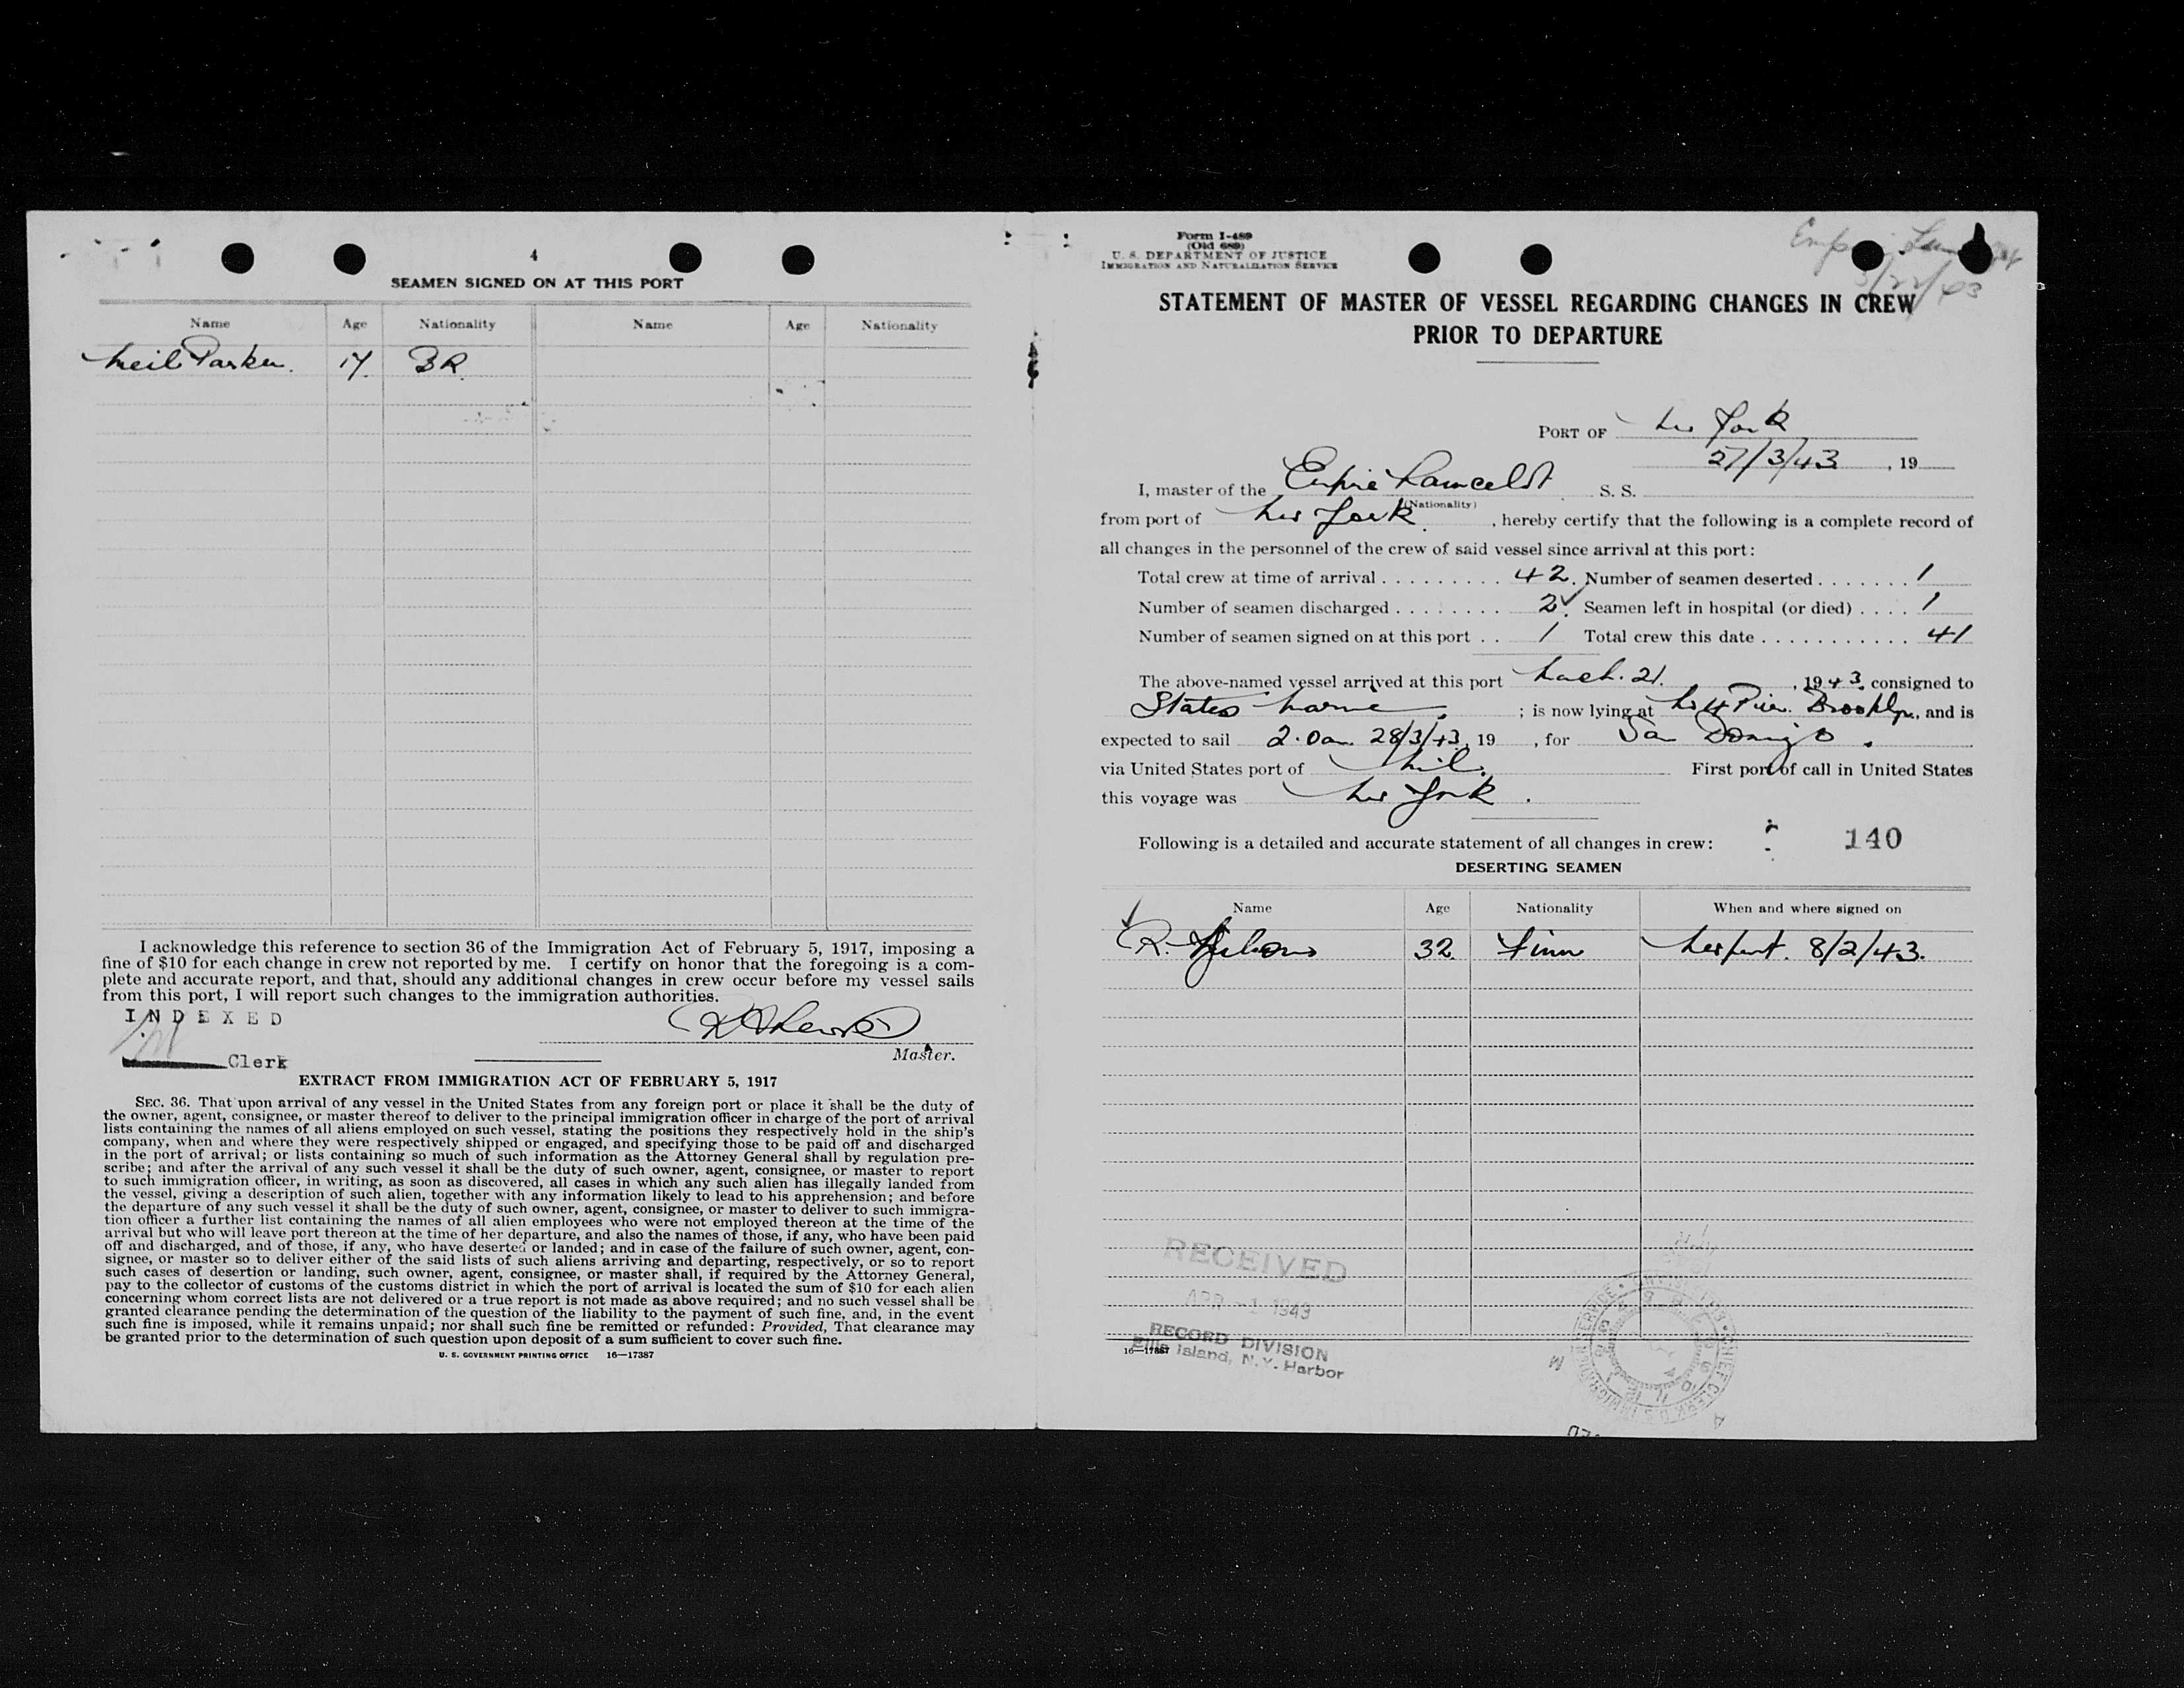 4
SEAMEN SIGNED ON AT THIS PORT
Name Age Nationality Name Age Nationality
Neil Parker. 17. BR.
I acknowledge this reference to section 36 of the Immigration Act of February 5, 1917, imposing a
fine of $10 for each change in crew not reported by me. I certify on honor that the foregoing is a com-
plete and accurate report, and that, should any additional changes in crew occur before my vessel sails
from this port, I will report such changes to the immigration authorities.
INDEXED
Clerk
Master.
EXTRACT FROM IMMIGRATION ACT OF FEBRUARY 5, 1917
SEC. 36. That upon arrival of any vessel in the United States from any foreign port or place it shall be the duty of
the owner, agent, consignee, or master thereof to deliver to the principal immigration officer in charge of the port of arrival
lists containing the names of all aliens employed on such vessel, stating the positions they respectively hold in the ship's
company, when and where they were respectively shipped or engaged, and specifying those to be paid off and discharged
in the port of arrival; or lists containing so much of such information as the Attorney General shall by regulation pre-
scribe; and after the arrival of any such vessel it shall be the duty of such owner, agent, consignee, or master to report
to such immigration officer, in writing, as soon as discovered, all cases in which any such alien has illegally landed from
the vessel, giving a description of such alien, together with any information likely to lead to his apprehension; and before
the departure of any such vessel it shall be the duty of such owner, agent, consignee, or master to deliver to such immigra-
tion officer a further list containing the names of all alien employees who were not employed thereon at the time of the
arrival but who will leave port thereon at the time of her departure, and also the names of those, if any, who have been paid
off and discharged, and of those, if any, who have deserted or landed; and in case of the failure of such owner, agent, con-
signee, or master so to deliver either of the said lists of such aliens arriving and departing, respectively, or so to report
such cases of desertion or landing, such owner, agent, consignee, or master shall, if required by the Attorney General,
pay to the collector of customs of the customs district in which the port of arrival is located the sum of $10 for each alien
concerning whom correct lists are not delivered or a true report is not made as above required; and no such vessel shall be
granted clearance pending the determination of the question of the liability to the payment of such fine, and, in the event
such fine is imposed, while it remains unpaid; nor shall such fine be remitted or refunded: Provided, That clearance may
be granted prior to the determination of such question upon deposit of a sum sufficient to cover such fine.
U. S. GOVERNMENT PRINTING OFFICE 16—17387
Form I-489
(Old 689)
U. S. DEPARTMENT OF JUSTICE
IMMIGRATION AND NATURALIZATION SERVICE
3/22/43
STATEMENT OF MASTER OF VESSEL REGARDING CHANGES IN CREW
PRIOR TO DEPARTURE
PORT OF New York
27/3/43, 19
I, master of the Empire Lancelot S. S.
(Nationality)
from port of New York, hereby certify that the following is a complete record of
all changes in the personnel of the crew of said vessel since arrival at this port:
Total crew at time of arrival 42. Number of seamen deserted 1
Number of seamen discharged 2. Seamen left in hospital (or died) 1
Number of seamen signed on at this port 1 Total crew this date 41
The above-named vessel arrived at this port March. 21., 1943. consigned to
States Marine; is now lying at Pier. Brooklyn, and is
expected to sail 28/3/43, 19, for San Domingo.
via United States port of Nil. First port of call in United States
this voyage was New York.
Following is a detailed and accurate statement of all changes in crew: 140
DESERTING SEAMEN
Name Age Nationality When and where signed on
R. 32. Finn Newport. 8/2/43.
RECEIVED
APR -1 1943
RECORD DIVISION
Ellis Island, N.Y. Harbor
16—17387